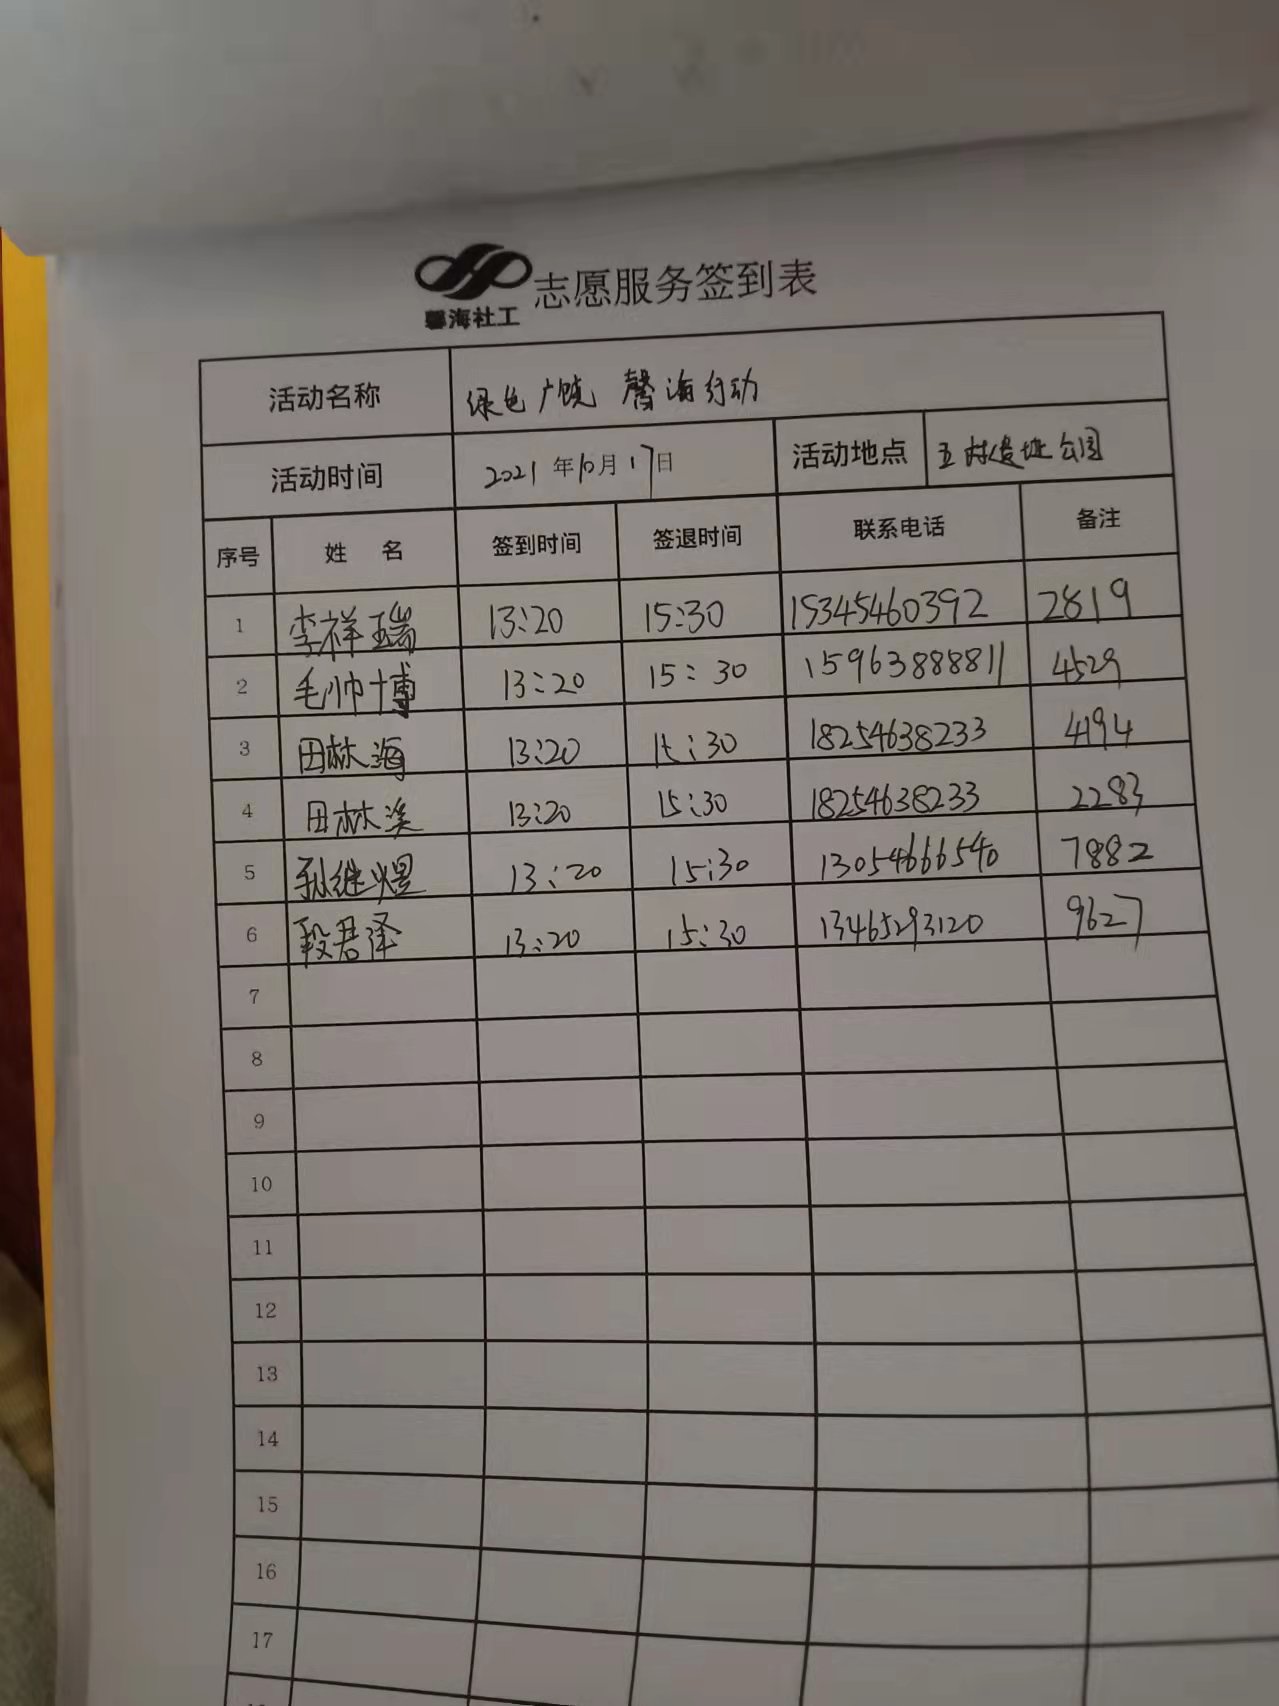 馨海社工 志愿服务签到表
活动名称 绿色广饶 馨海行动
活动时间 2021年10月17日 活动地点 五村遗址公园
序号 姓 名 签到时间 签退时间 联系电话 备注
1 李祥瑞 13:20 15:30 15345460392 2819
2 毛帅博 13:20 15:30 15963888811 4529
3 田林海 13:20 15:30 18254638233 4194
4 田林溪 13:20 15:30 18254638233 2283
5 孙继煜 13:20 15:30 13054666540 7882
6 段君泽 13:20 15:30 13465293120 9627
7
8
9
10
11
12
13
14
15
16
17